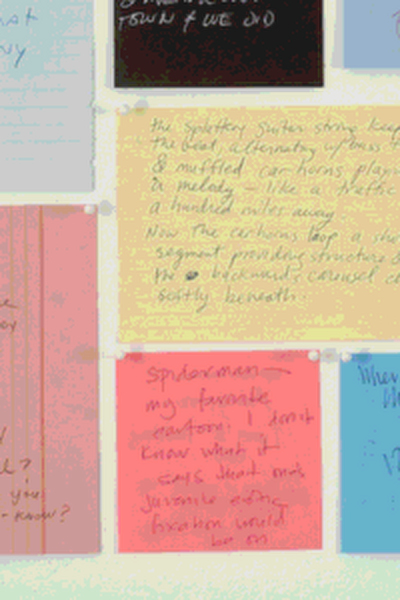 TOWN & WE DID
the splattery guitar string keep
the beat, alternating w/ bass
& muffled car horns play
a melody — like a traffic
a hundred miles away
Now the carhorns loop a sho
segment providing structure &
the backwards carousel
softly beneath.
Spiderman —
my favorite
cartoon. I don't
know what it
says that one's
juvenile
fixation would
be on
you
- KNOW?
When